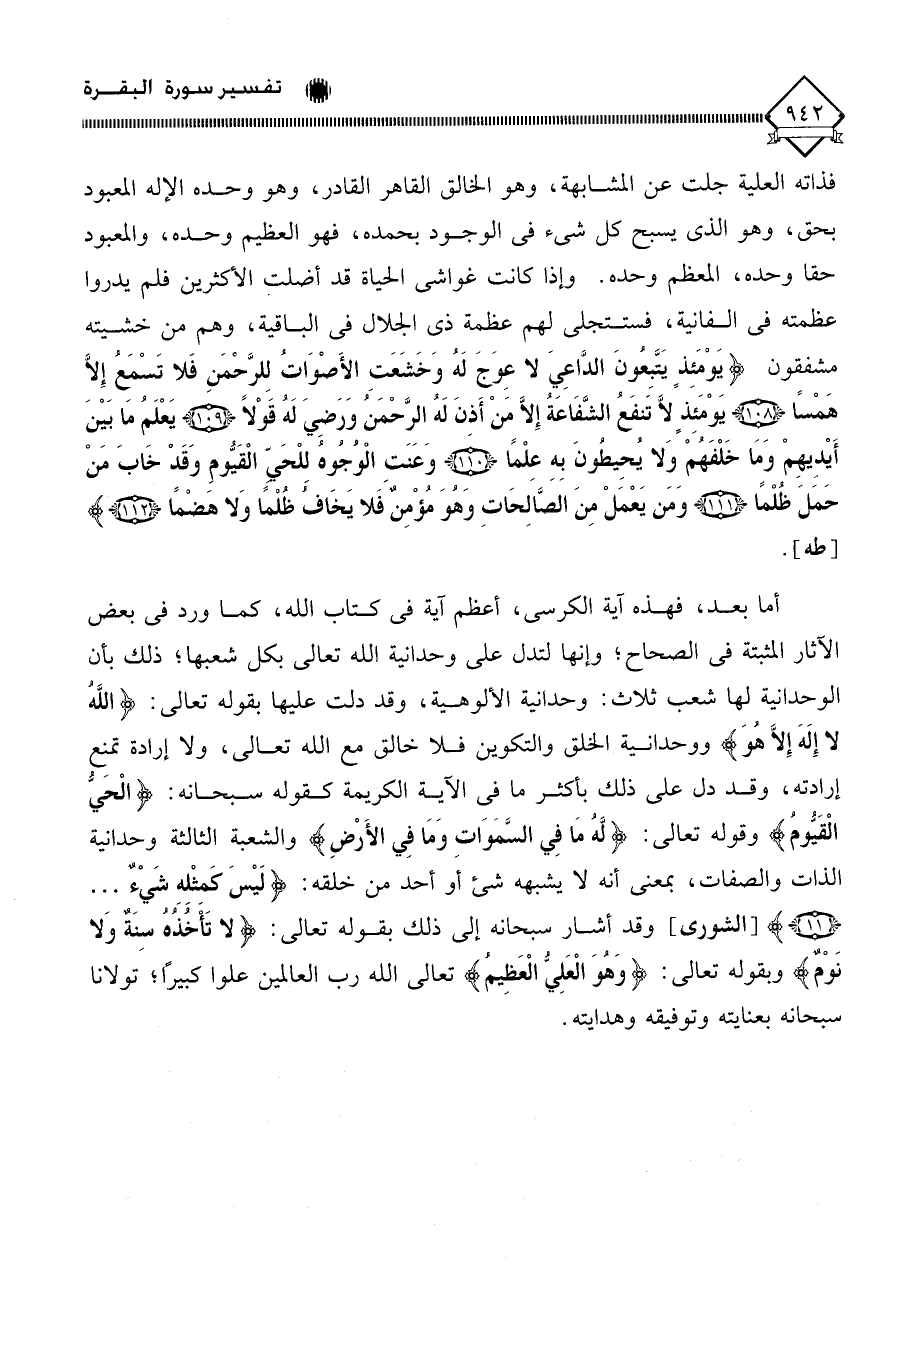 تفسير سورة البقرة
٩٤٢
فذاته العلية جلت عن المشابهة، وهو الخالق القاهر القادر، وهو وحده الإله المعبود
بحق، وهو الذى يسبح كل شىء فى الوجود بحمده، فهو العظيم وحده، والمعبود
حقا وحده، المعظم وحده. وإذا كانت غواشى الحياة قد أضلت الأكثرين فلم يدروا
عظمته فى الفانية، فستتجلى لهم عظمة ذى الجلال فى الباقية، وهم من خشيته
مشفقون ﴿يَوْمَئِذٍ يَتَّبِعُونَ الدَّاعِيَ لا عِوَجَ لَهُ وَخَشَعَتِ الأَصْوَاتُ لِلرَّحْمَنِ فَلا تَسْمَعُ إِلاَّ
هَمْسًا ﴿١٠٨﴾ يَوْمَئِذٍ لاَّ تَنفَعُ الشَّفَاعَةُ إِلاَّ مَنْ أَذِنَ لَهُ الرَّحْمَنُ وَرَضِيَ لَهُ قَوْلاً ﴿١٠٩﴾ يَعْلَمُ مَا بَيْنَ
أَيْدِيهِمْ وَمَا خَلْفَهُمْ وَلا يُحِيطُونَ بِهِ عِلْمًا ﴿١١٠﴾ وَعَنَتِ الْوُجُوهُ لِلْحَيِّ الْقَيُّومِ وَقَدْ خَابَ مَنْ
حَمَلَ ظُلْمًا ﴿١١١﴾ وَمَن يَعْمَلْ مِنَ الصَّالِحَاتِ وَهُوَ مُؤْمِنٌ فَلا يَخَافُ ظُلْمًا وَلا هَضْمًا ﴿١١٢﴾﴾
[طه].
أما بعد، فهذه آية الكرسى، أعظم آية فى كتاب الله، كما ورد فى بعض
الآثار المثبتة فى الصحاح؛ وإنها لتدل على وحدانية الله تعالى بكل شعبها؛ ذلك بأن
الوحدانية لها شعب ثلاث: وحدانية الألوهية، وقد دلت عليها بقوله تعالى: ﴿اللَّهُ
لا إِلَهَ إِلاَّ هُوَ﴾ ووحدانية الخلق والتكوين فلا خالق مع الله تعالى، ولا إرادة تمنع
إرادته، وقد دل على ذلك بأكثر ما فى الآية الكريمة كقوله سبحانه: ﴿الْحَيُّ
الْقَيُّومُ﴾ وقوله تعالى: ﴿لَّهُ مَا فِي السَّمَوَاتِ وَمَا فِي الأَرْضِ﴾ والشعبة الثالثة وحدانية
الذات والصفات، بمعنى أنه لا يشبهه شئ أو أحد من خلقه: ﴿لَيْسَ كَمِثْلِهِ شَيْءٌ ...
﴿١١﴾﴾ [الشورى] وقد أشار سبحانه إلى ذلك بقوله تعالى: ﴿لا تَأْخُذُهُ سِنَةٌ وَلا
نَوْمٌ﴾ وبقوله تعالى: ﴿وَهُوَ الْعَلِيُّ الْعَظِيمُ﴾ تعالى الله رب العالمين علوا كبيرًا؛ تولانا
سبحانه بعنايته وتوفيقه وهدايته.